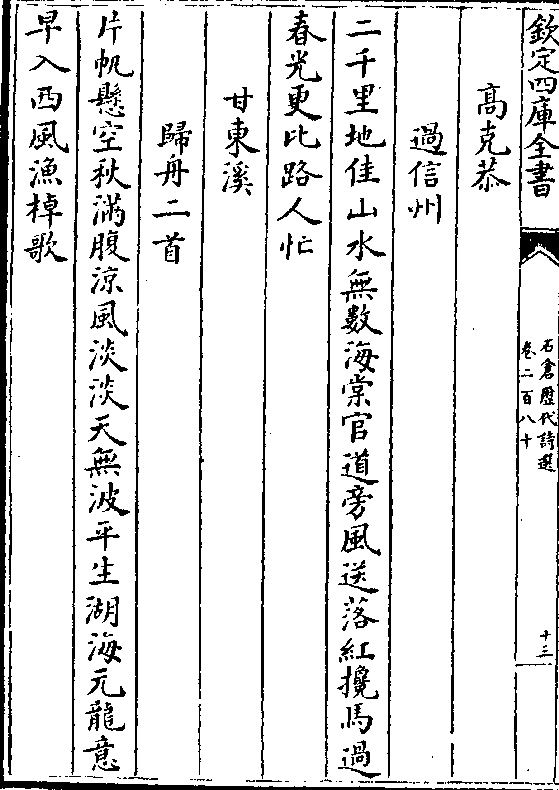 欽定四庫全書
石倉歷代詩選
卷二百八十
十三
高克恭
過信州
二千里地佳山水無數海棠官道旁風送落紅攙馬過
春光更比路人忙
甘東溪
歸舟二首
片帆懸空秋滿腹涼風淡淡天無波平生湖海元龍意
早入西風漁棹歌